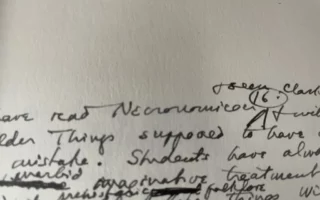 + seen Clark
16.
have read Necronomicon + wil
lder Things supposed to have
mistake. Students have alwa
morbid imaginative treatment
things wi